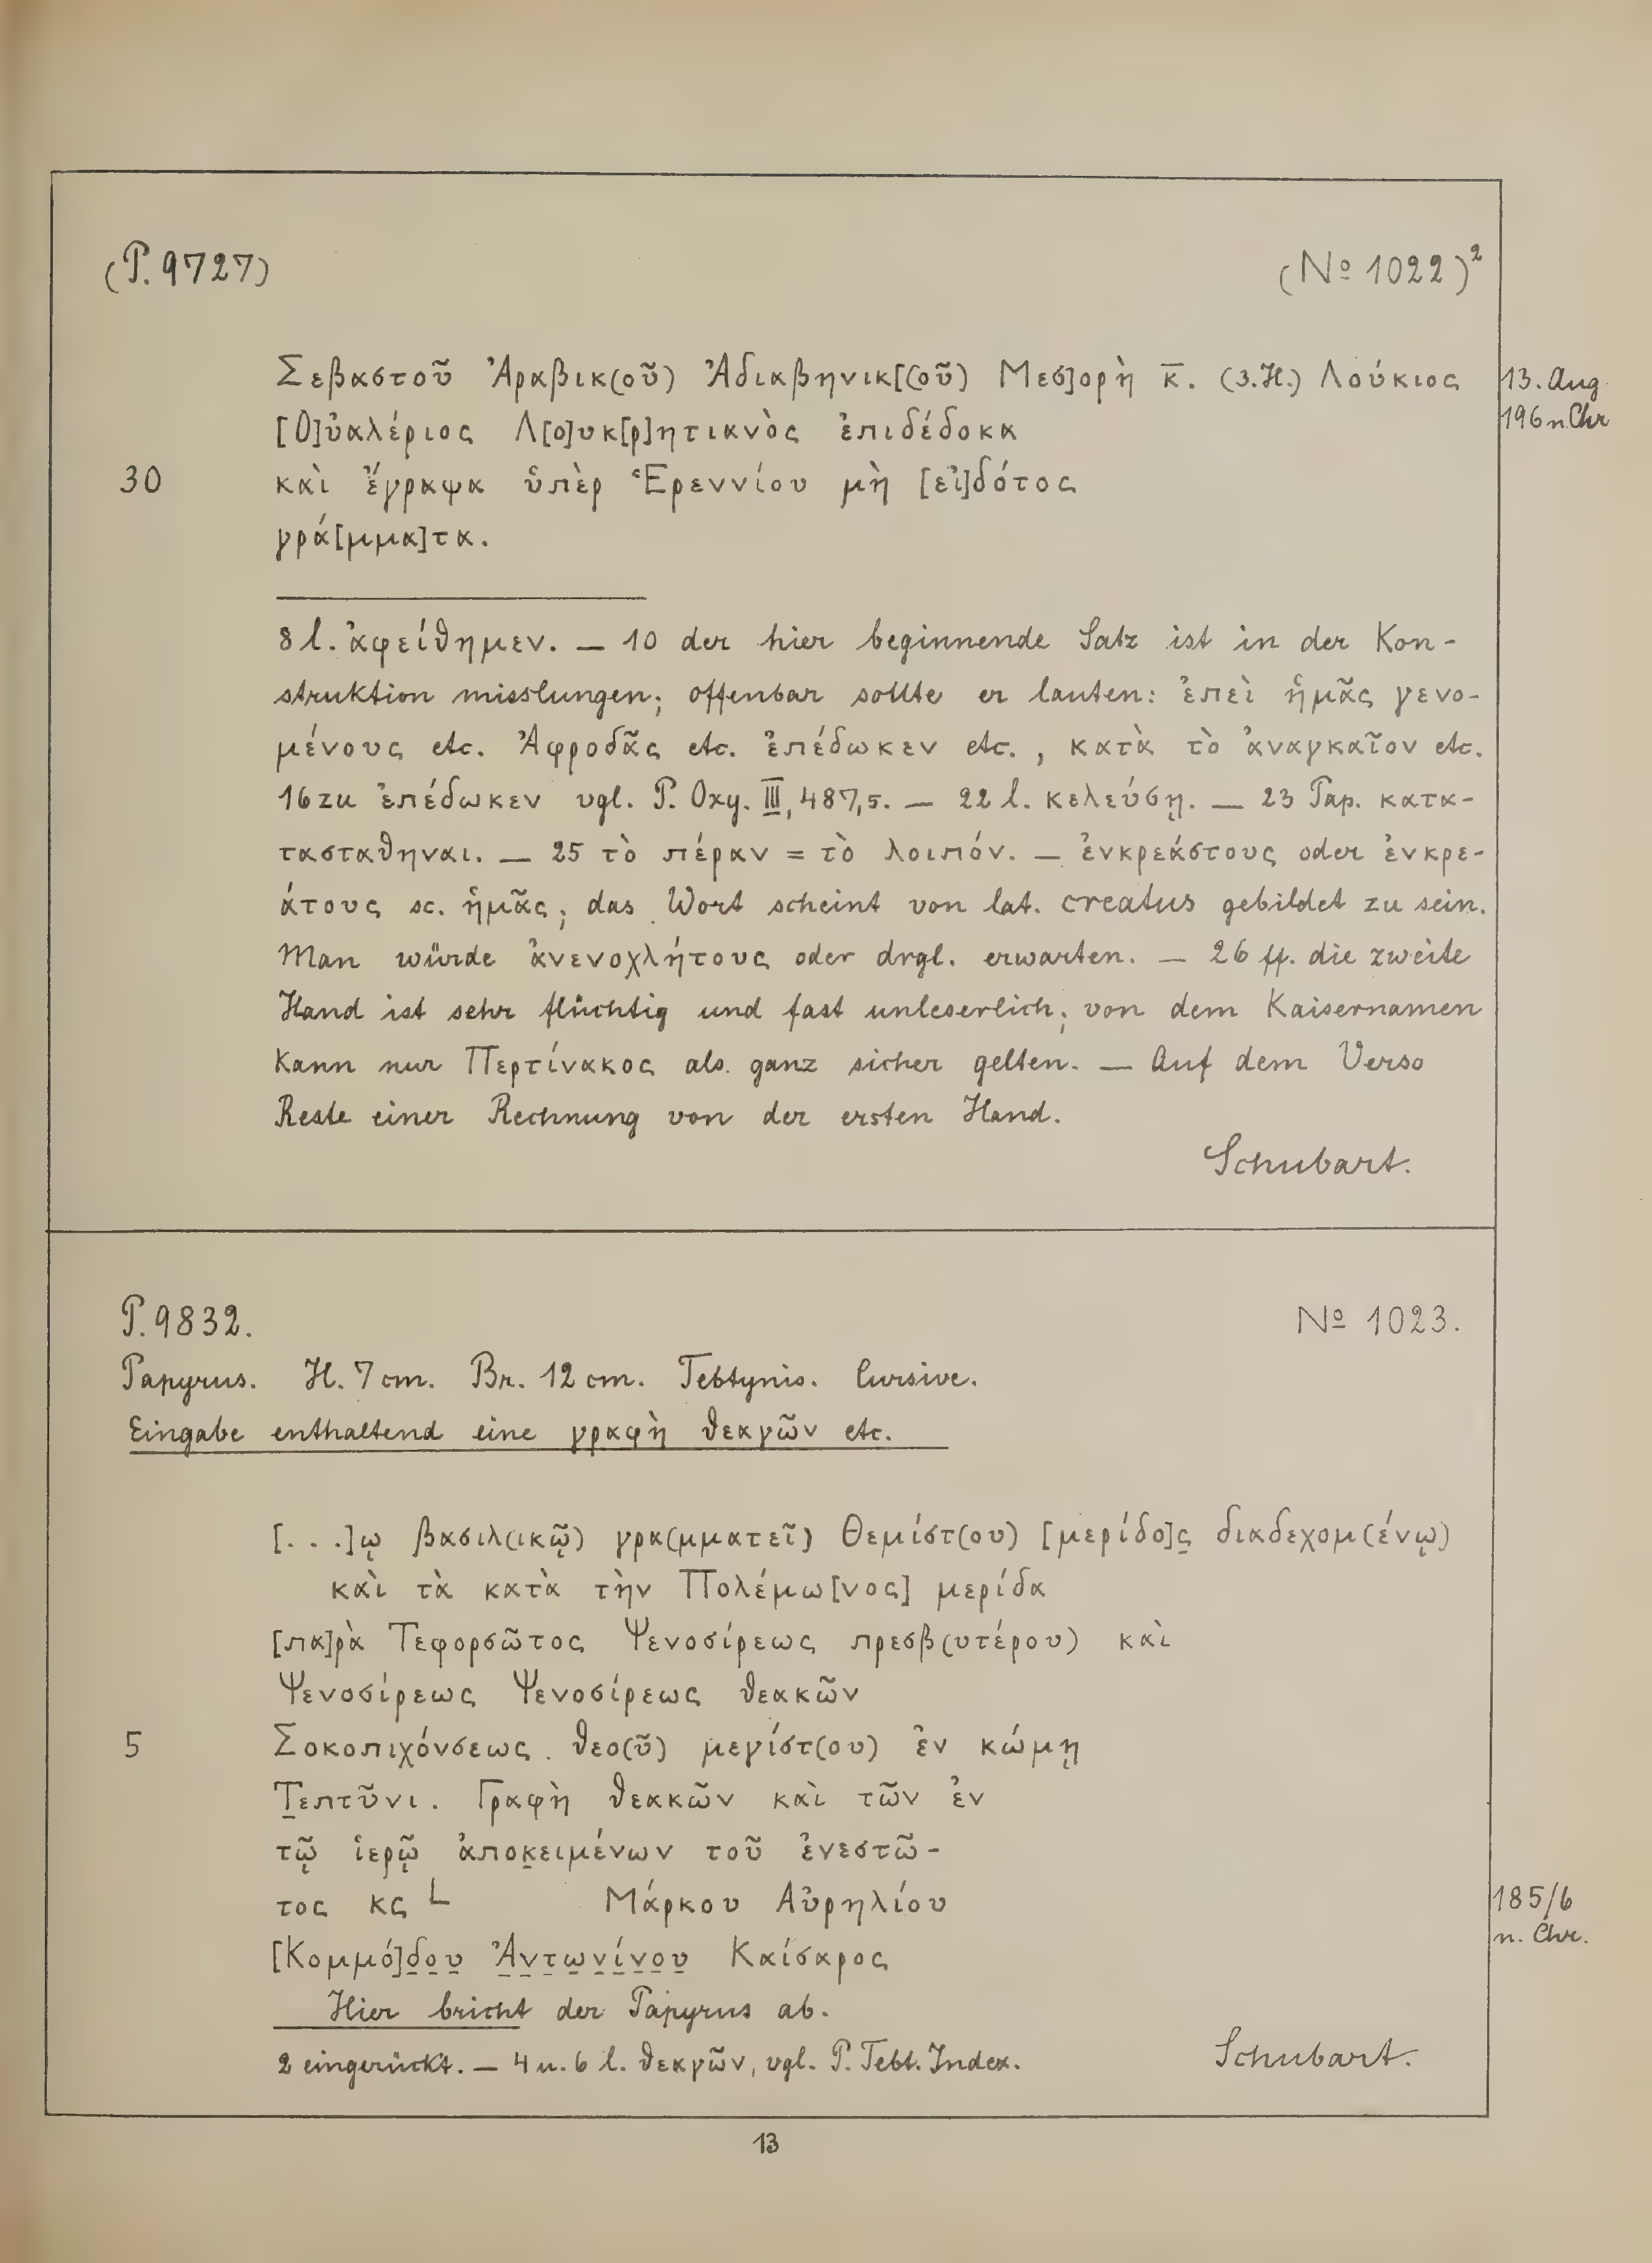 (P. 9727) (No 1022)²
Σεβαστοῦ Ἀραβικ(οῦ) Ἀδιαβηνικ[(οῦ) Μεσ]ορὴ κ̅. (3. H.) Λούκιος 13. Aug.
[Ο]ὐαλέριος Λ[ο]υκ[ρ]ητιανὸς ἐπιδέδοκα 196 n. Chr
30 καὶ ἔγραψα ὑπὲρ Ἑρεννίου μὴ [εἰ]δότος
γρά[μμα]τα.
8 l. ἀφείθημεν. — 10 der hier beginnende Satz ist in der Kon-
struktion misslungen; offenbar sollte er lauten: ἐπεὶ ἡμᾶς γενο-
μένους etc. Ἀφροδᾶς etc. ἐπέδωκεν etc., κατὰ τὸ ἀναγκαῖον etc.
16 zu ἐπέδωκεν vgl. P. Oxy. III, 487,5. — 22 l. κελεύσῃ. — 23 Pap. κατα-
τασταθηναι. — 25 τὸ πέραν = τὸ λοιπόν. — ἐνκρεάστους oder ἐνκρε-
άτους sc. ἡμᾶς; das Wort scheint von lat. creatus gebildet zu sein.
Man würde ἀνενοχλήτους oder drgl. erwarten. — 26 ff. die zweite
Hand ist sehr flüchtig und fast unleserlich; von dem Kaisernamen
kann nur Περτίνακος als ganz sicher gelten. — Auf dem Verso
Reste einer Rechnung von der ersten Hand.
Schubart.
P. 9832. No 1023.
Papyrus. H. 7 cm. Br. 12 cm. Tebtynis. Cursive.
Eingabe enthaltend eine γραφὴ θεαγῶν etc.
[. . .]ῳ βασιλ(ικῷ) γρα(μματεῖ) Θεμίστ(ου) [μερίδο]ς̣ διαδεχομ(ένῳ)
καὶ τὰ κατὰ τὴν Πολέμω[νος] μερίδα
[πα]ρὰ Τεφορσῶτος Ψενοσίρεως πρεσβ(υτέρου) καὶ
Ψενοσίρεως Ψενοσίρεως θεακῶν
5 Σοκοπιχόνσεως θεο(ῦ) μεγίστ(ου) ἐν κώμῃ
Τ̣επτῦνι. Γραφὴ θεακῶν καὶ τῶν ἐν
τῷ ἱερῷ ἀποκ̣ειμένων τοῦ ἐνεστῶ-
τος κς L Μάρκου Αὐρηλίου 185/6
n. Chr.
[Κομμό]δ̣ο̣υ̣ Ἀ̣ν̣τ̣ω̣ν̣ί̣ν̣ο̣υ̣ Καίσαρος
Hier bricht der Papyrus ab.
2 eingerückt. — 4 u. 6 l. θεαγῶν, vgl. P. Tebt. Index. Schubart.
13